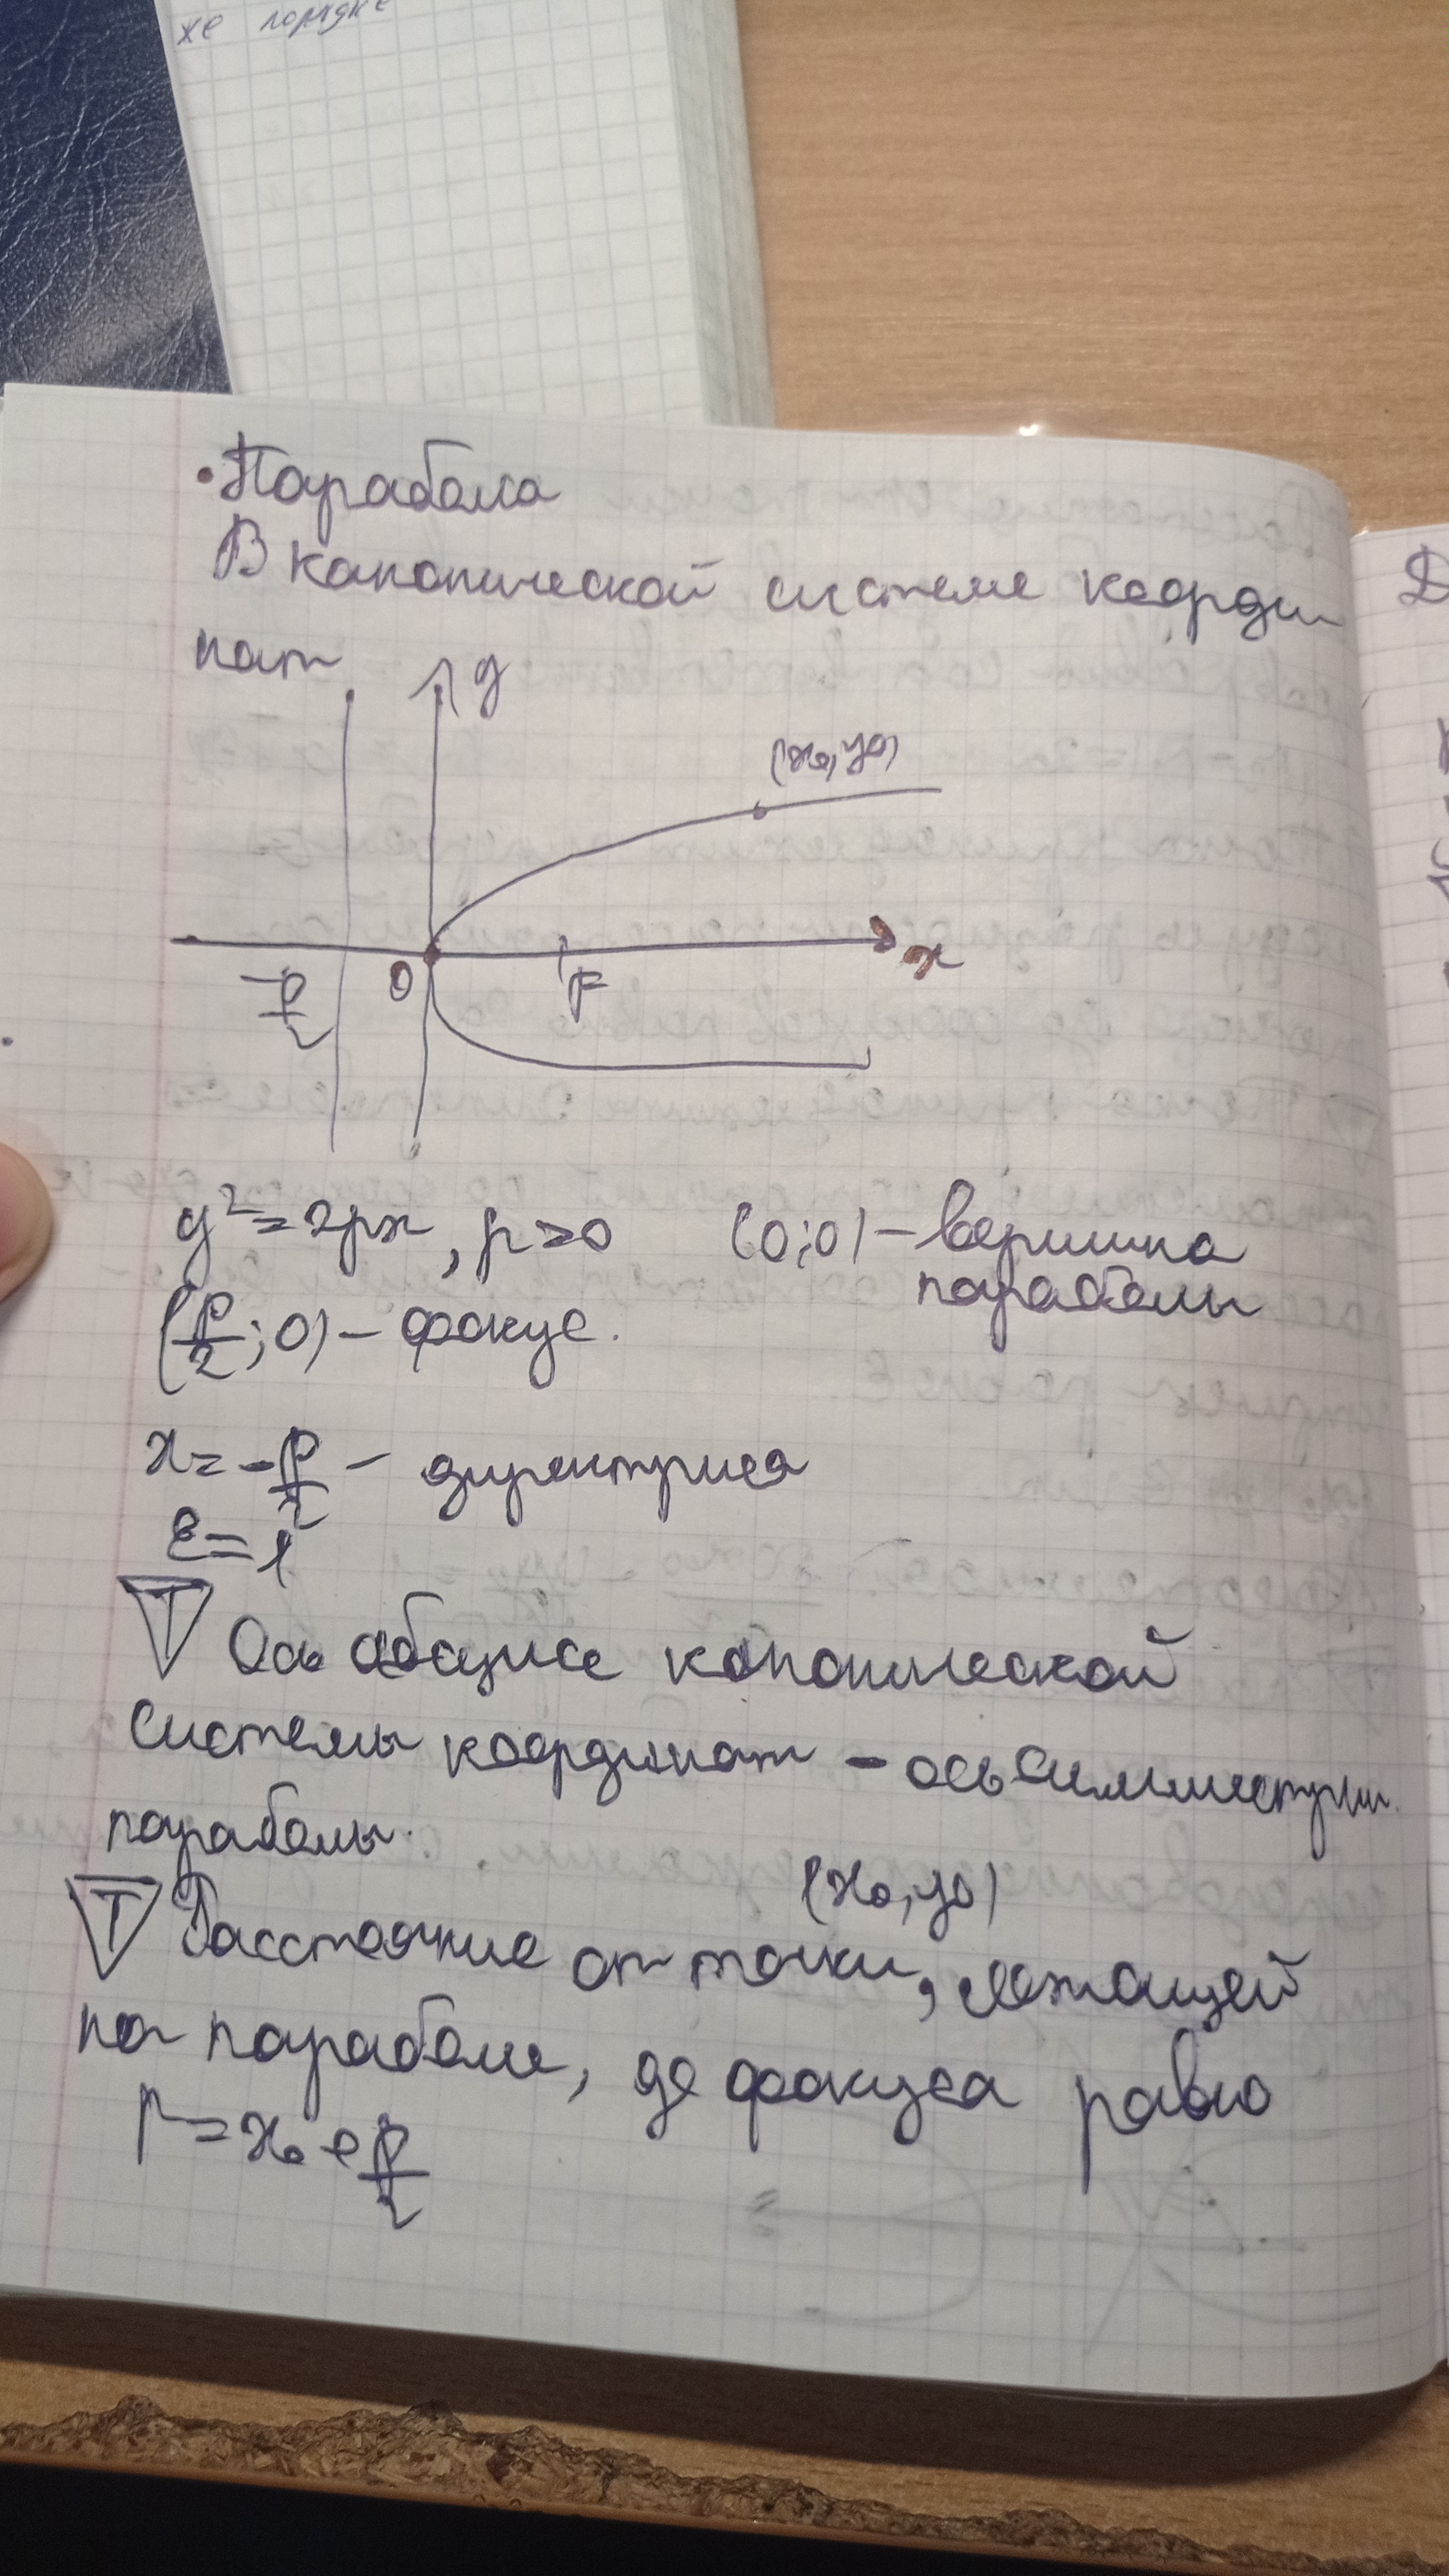 же порядке
• Парабола
В канонической системе коорди
нат
y
(x₀, y₀)
x
-p/2
0
F
y² = 2px, p > 0 (0;0) – вершина
параболы
(p/2; 0) – фокус.
x = -p/2 – директриса
ε = 1
T Ось абсцисс канонической
системы координат – ось симметрии
параболы.
(x₀, y₀)
T Расстояние от точки, лежащей
на параболе, до фокуса равно
r = x₀ + p/2